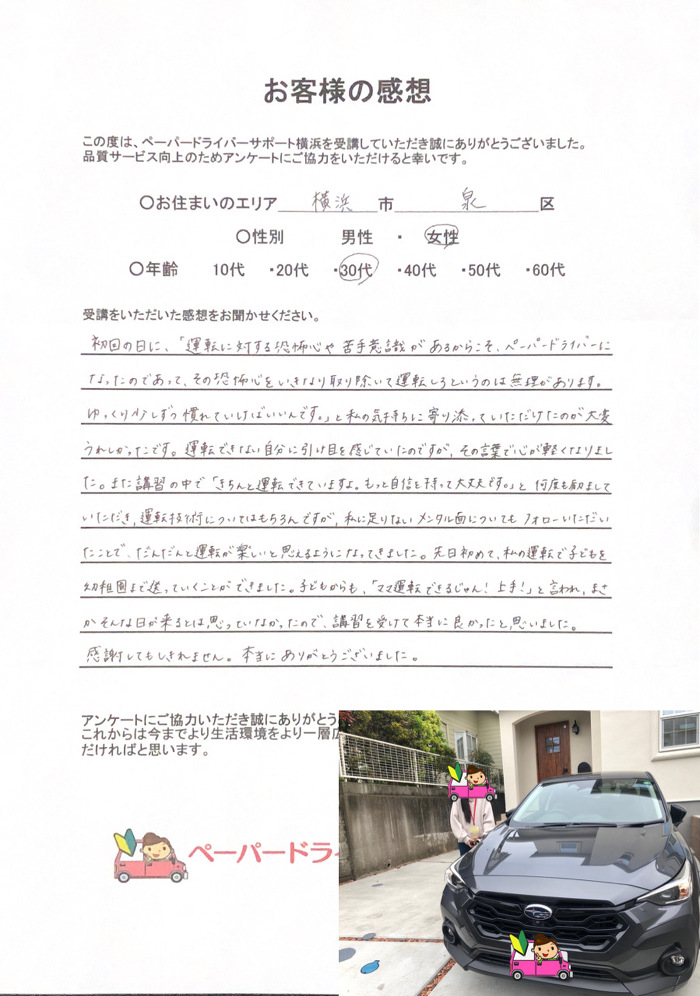 お客様の感想
この度は、ペーパードライバーサポート横浜を受講していただき誠にありがとうございました。
品質サービス向上のためアンケートにご協力をいただけると幸いです。
〇お住まいのエリア 横浜 市 泉 区
〇性別 男性 ・ 女性
〇年齢 10代 ・20代 ・30代 ・40代 ・50代 ・60代
受講をいただいた感想をお聞かせください。
初回の日に、「運転に対する恐怖心や苦手意識があるからこそ、ペーパードライバーに
なったのであって、その恐怖心をいきなり取り除いて運転しろというのは無理があります。
ゆっくり少しずつ慣れていけばいいんです。」と私の気持ちに寄り添っていただけたのが大変
うれしかったです。運転できない自分に引け目を感じていたのですが、その言葉で心が軽くなりまし
た。また講習の中で「きちんと運転できていますよ。もっと自信を持って大丈夫です。」と何度も励まして
いただき、運転技術についてはもちろんですが、私に足りないメンタル面についてもフォローいただい
たことで、だんだんと運転が楽しいと思えるようになってきました。先日初めて、私の運転で子どもを
幼稚園まで送っていくことができました。子どもからも、「ママ運転できるじゃん！上手！」と言われ、まさ
かそんな日が来るとは思っていなかったので、講習を受けて本当に良かったと思いました。
感謝してもしきれません。本当にありがとうございました。
アンケートにご協力いただき誠にありがとう
これからは今までより生活環境をより一層広
だければと思います。
ペーパードライ